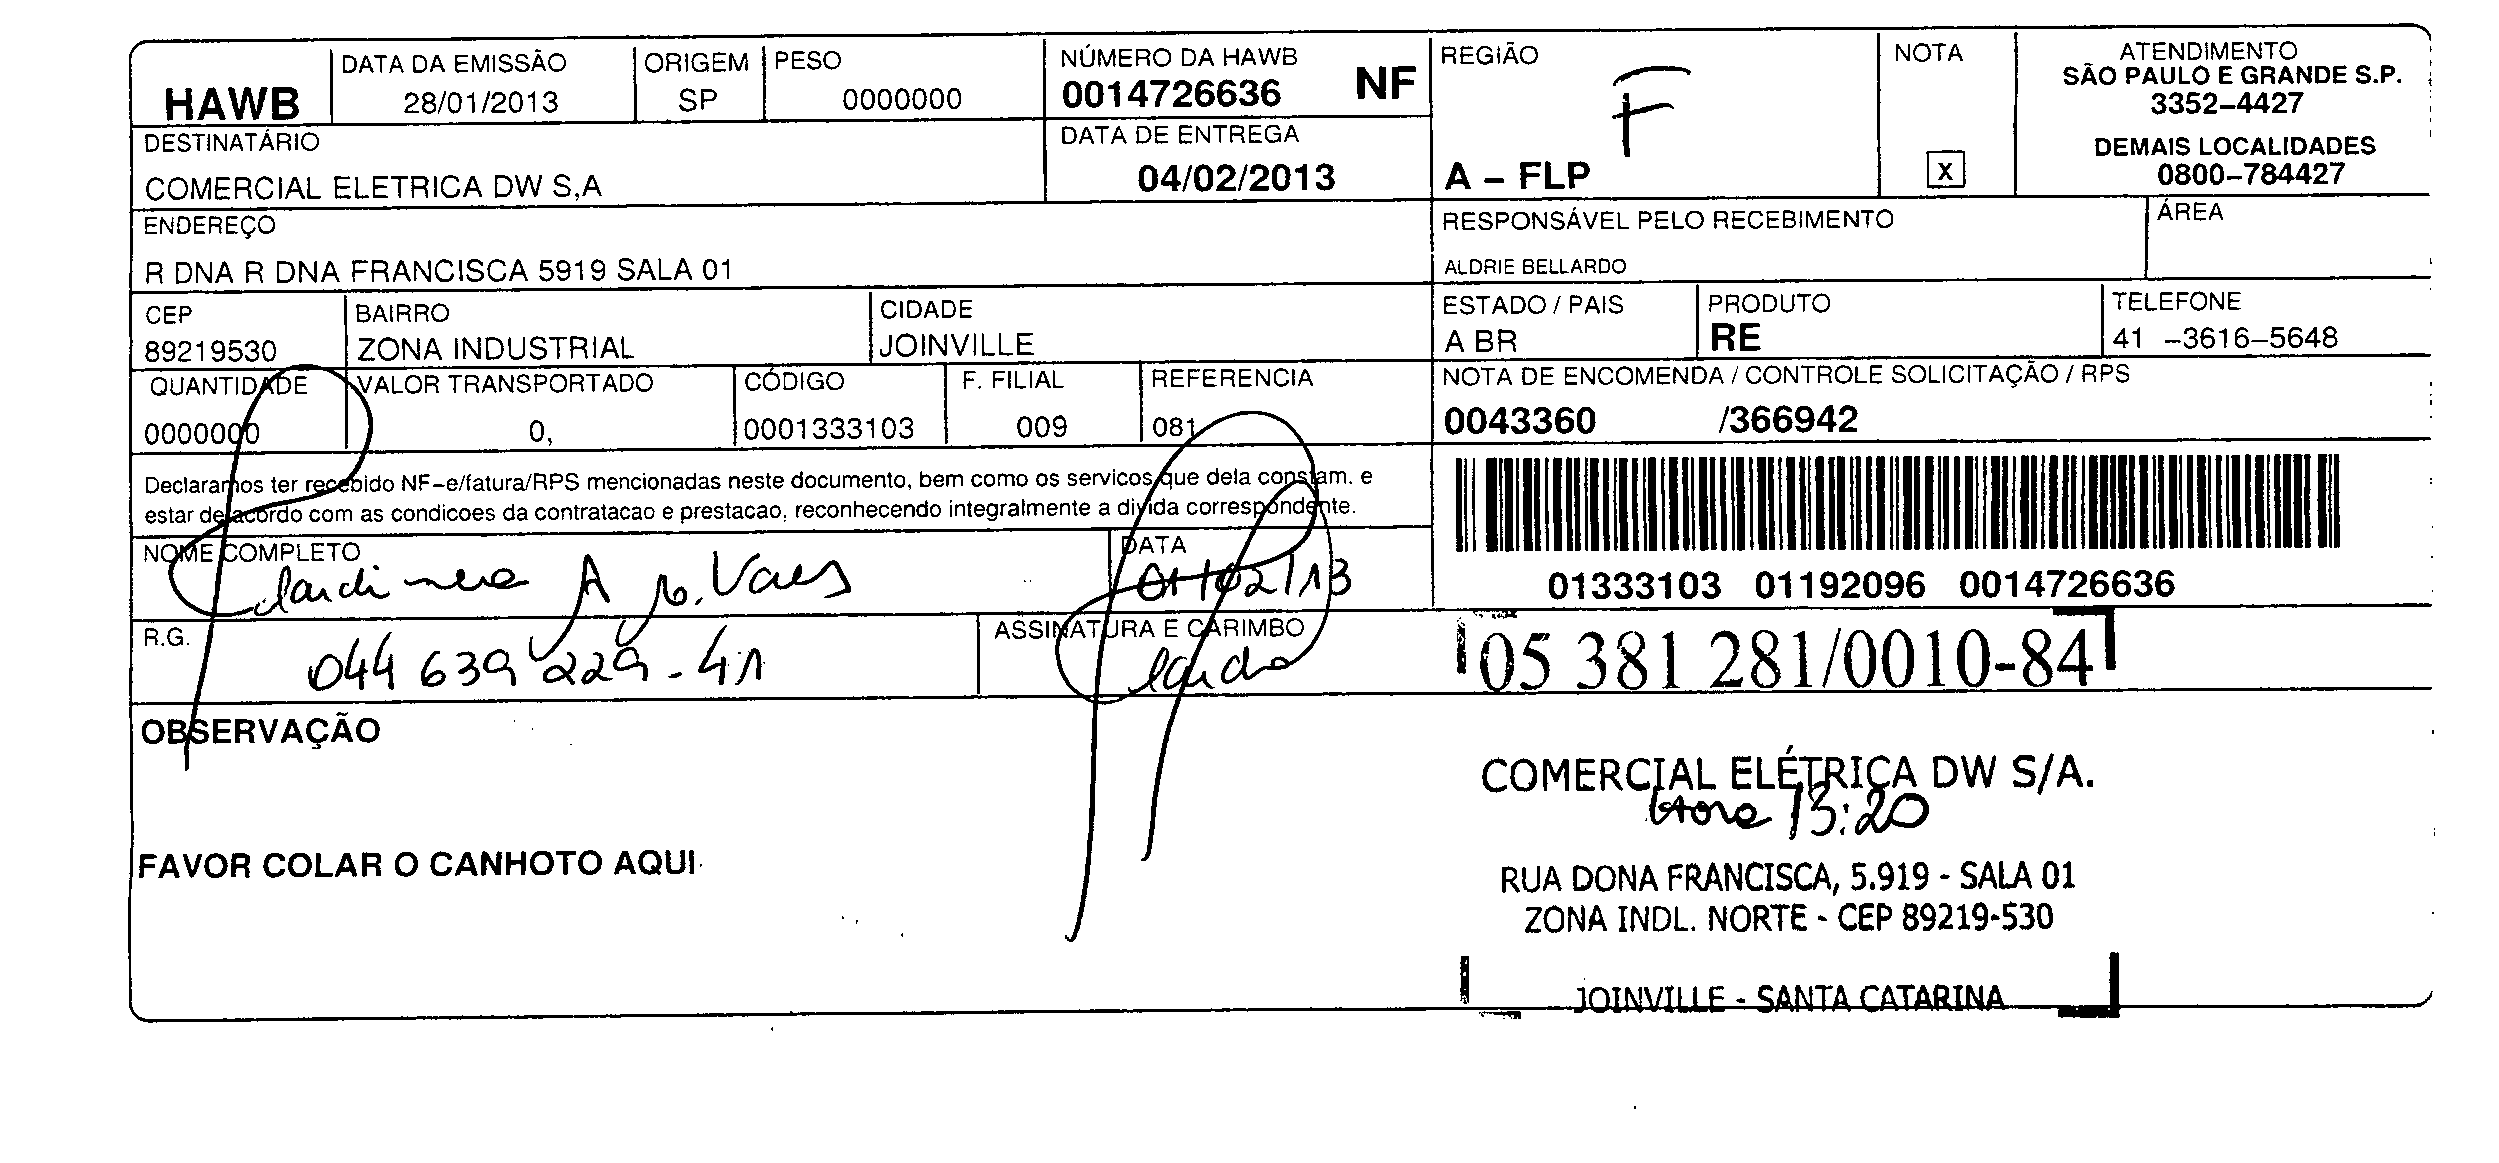 HAWB
DATA DA EMISSÃO
28/01/2013
ORIGEM
SP
PESO
0000000
NÚMERO DA HAWB
0014726636 NF
DATA DE ENTREGA
04/02/2013
REGIÃO
F
A – FLP
NOTA
X
ATENDIMENTO
SÃO PAULO E GRANDE S.P.
3352–4427
DEMAIS LOCALIDADES
0800–784427
DESTINATÁRIO
COMERCIAL ELETRICA DW S,A
ENDEREÇO
R DNA R DNA FRANCISCA 5919 SALA 01
RESPONSÁVEL PELO RECEBIMENTO
ALDRIE BELLARDO
ÁREA
CEP
89219530
BAIRRO
ZONA INDUSTRIAL
CIDADE
JOINVILLE
ESTADO / PAIS
A BR
PRODUTO
RE
TELEFONE
41 –3616–5648
QUANTIDADE
0000000
VALOR TRANSPORTADO
0,
CÓDIGO
0001333103
F. FILIAL
009
REFERENCIA
081
NOTA DE ENCOMENDA / CONTROLE SOLICITAÇÃO / RPS
0043360 /366942
Declaramos ter recebido NF–e/fatura/RPS mencionadas neste documento, bem como os servicos que dela constam. e
estar de acordo com as condicoes da contratacao e prestacao, reconhecendo integralmente a divida correspondente.
01333103 01192096 0014726636
NOME COMPLETO
A
DATA
01/02/13
R.G.
044 639 229-41
ASSINATURA E CARIMBO
05 381 281/0010-84
OBSERVAÇÃO
COMERCIAL ELÉTRICA DW S/A.
Hora 13:20
FAVOR COLAR O CANHOTO AQUI
RUA DONA FRANCISCA, 5.919 - SALA 01
ZONA INDL. NORTE - CEP 89219-530
JOINVILLE - SANTA CATARINA